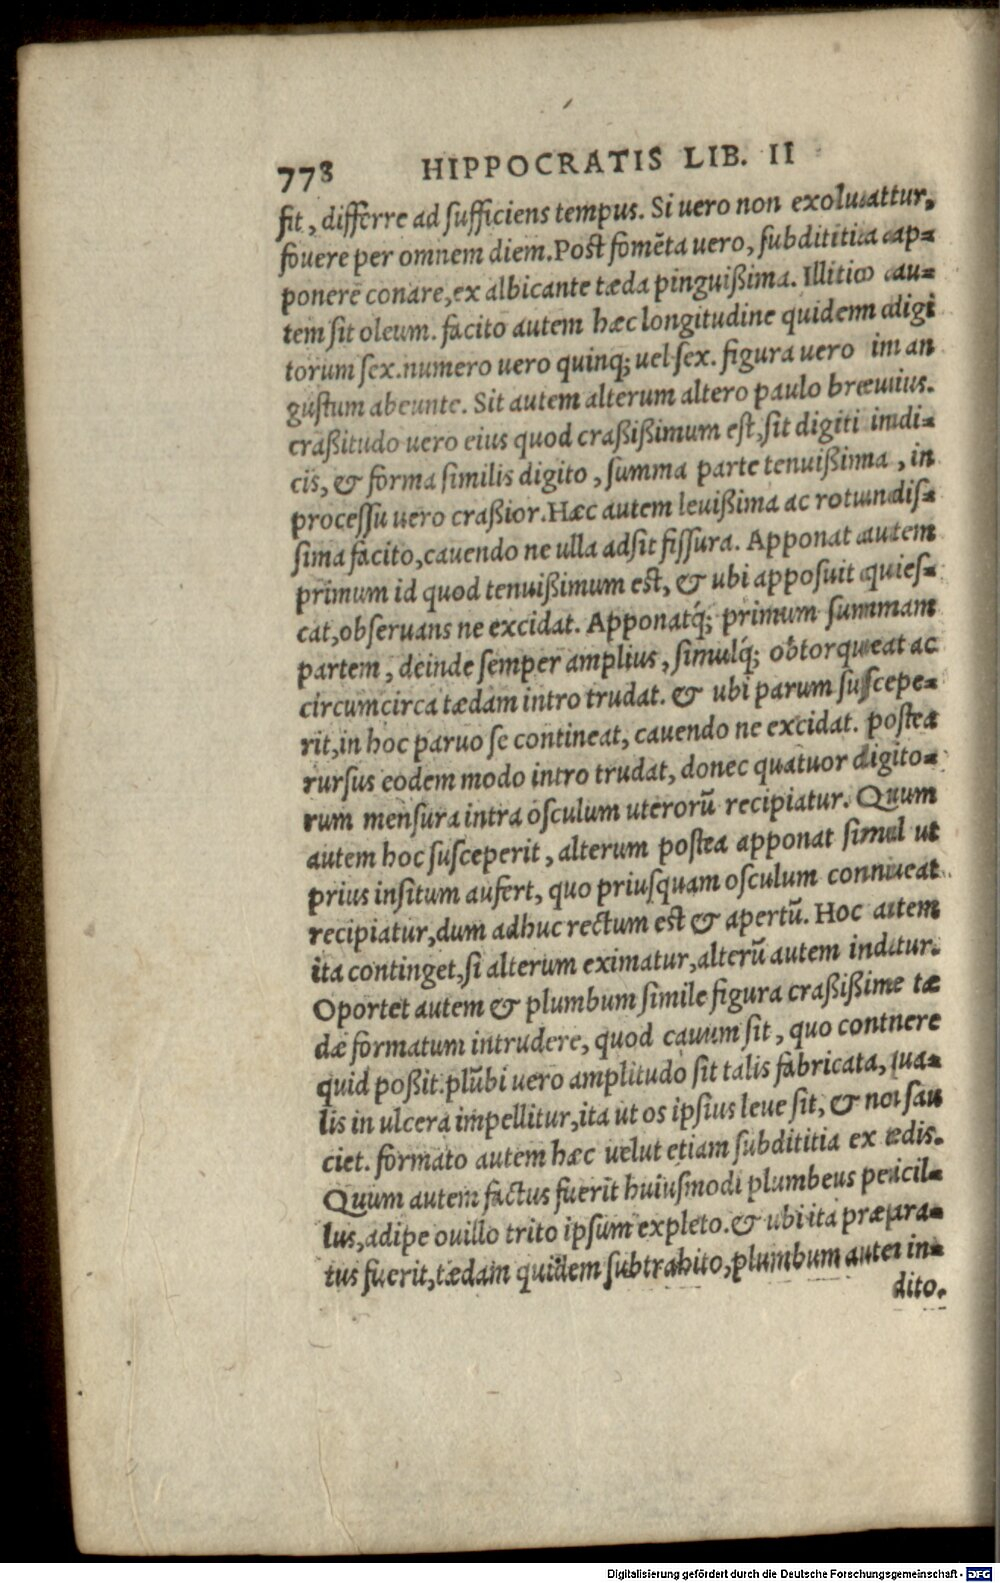 778 HIPPOCRATIS LIB. II
fit, differre ad sufficiens tempus. Si uero non exoluattur,
fouere per omnem diem. Post fomēta uero, subdititia ap=
ponere conare, ex albicante tæda pinguißima. Illitio au=
tem sit oleum. facito autem hæc longitudine quidem digi
torum sex. numero uero quinq; uel sex. figura uero in an
gustum abeunte. Sit autem alterum altero paulo breuius.
craßitudo uero eius quod craßißimum est, sit digiti indi=
cis, & forma similis digito, summa parte tenuißima, in
processu uero craßior. Hæc autem leuißima ac rotundis=
sima facito, cauendo ne ulla adsit fissura. Apponat autem
primum id quod tenuißimum est, & ubi apposuit quies=
cat, obseruans ne excidat. Apponatq́; primum summam
partem, deinde semper amplius, simulq́; obtorqueat ac
circumcirca tædam intro trudat. & ubi parum suscepe=
rit, in hoc paruo se contineat, cauendo ne excidat. postea
rursus eodem modo intro trudat, donec quatuor digito=
rum mensura intra osculum uterorū recipiatur. Quum
autem hoc susceperit, alterum postea apponat simul ut
prius insitum aufert, quo priusquam osculum conniueat
recipiatur, dum adhuc rectum est & apertū. Hoc autem
ita continget, si alterum eximatur, alterū autem indatur.
Oportet autem & plumbum simile figura craßißime tæ
dæ formatum intrudere, quod cauum sit, quo continere
quid poßit. plūbi uero amplitudo sit talis fabricata, qua=
lis in ulcera impellitur, ita ut os ipsius leue sit, & non sau
ciet. formato autem hæc uelut etiam subdititia ex tædis.
Quum autem factus fuerit huiusmodi plumbeus penicil=
lus, adipe ouillo trito ipsum expleto. & ubi ita præpara=
tus fuerit, tædam quidem subtrahito, plumbum autem in=
dito.
Digitalisierung gefördert durch die Deutsche Forschungsgemeinschaft - DFG